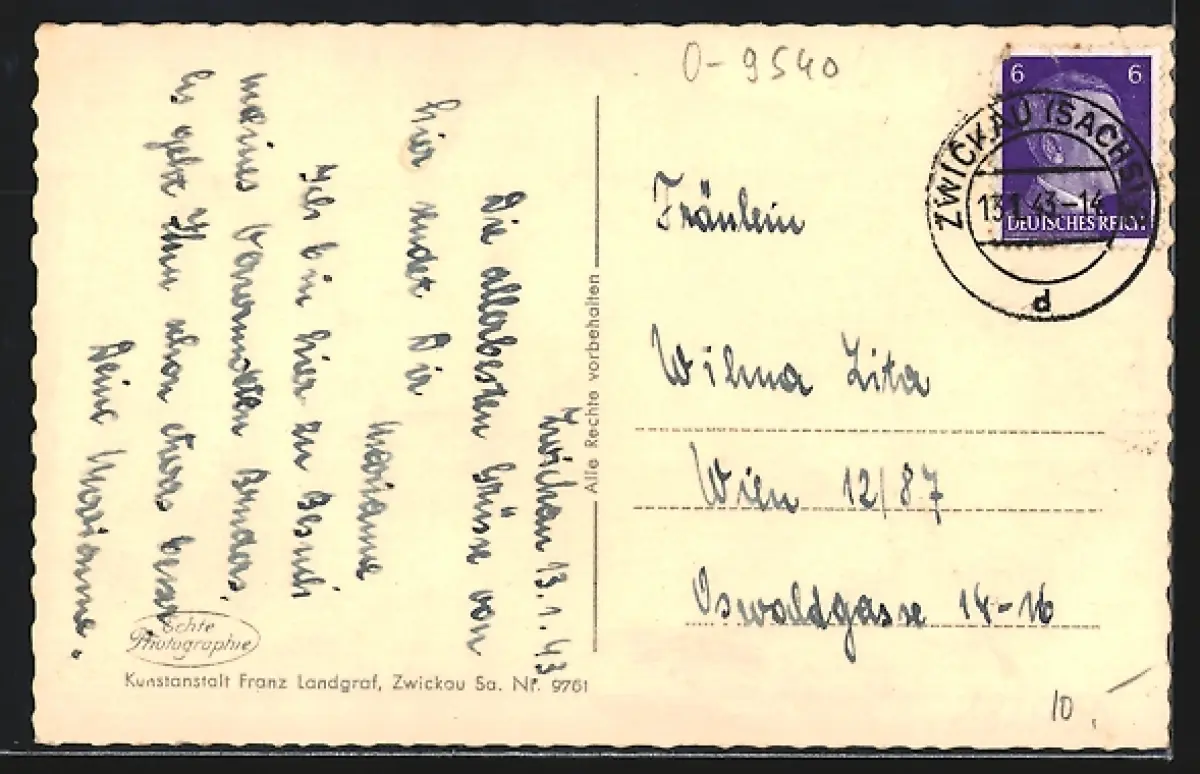 O-9540
6 6
DEUTSCHES REICH
ZWICKAU (SACHSEN)
13.1.43-14
d
Zwickau 13.1.43
Die allerbesten Grüsse von
hier sendet Dir
Marianne
Ich bin hier zu Besuch
meines verwundeten Bruders
Es geht Ihm schon etwas besser
Deine Marianne.
Alle Rechte vorbehalten
Fräulein
Wilma Zita
Wien 12/87
Oswaldgasse 14-16
Echte
Photographie
Kunstanstalt Franz Landgraf, Zwickau Sa. Nr. 9761
10,-